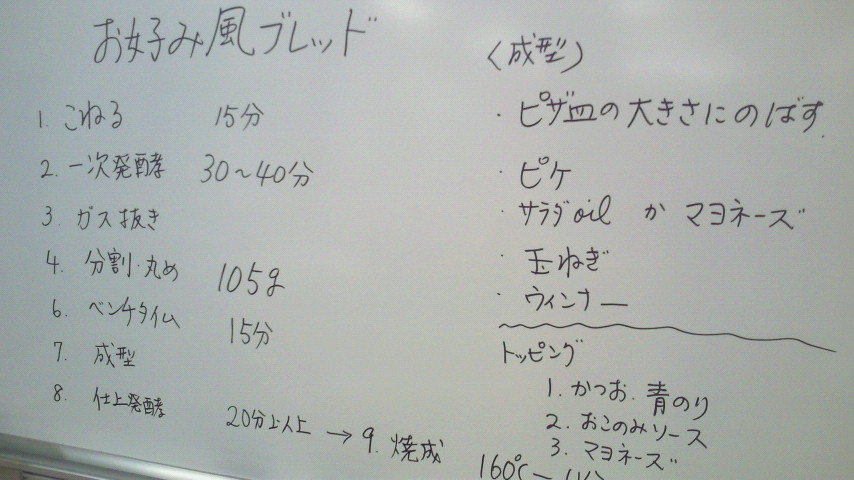 お好み風ブレッド
1. こねる 15分
2. 一次発酵 30～40分
3. ガス抜き
4. 分割・丸め 105g
6. ベンチタイム 15分
7. 成型
8. 仕上発酵 20分以上 → 9. 焼成
160℃～
〈成型〉
・ピザ皿の大きさにのばす.
・ピケ
・サラダoil か マヨネーズ
・玉ねぎ
・ウィンナー
トッピング
1. かつお. 青のり
2. おこのみソース
3. マヨネーズ